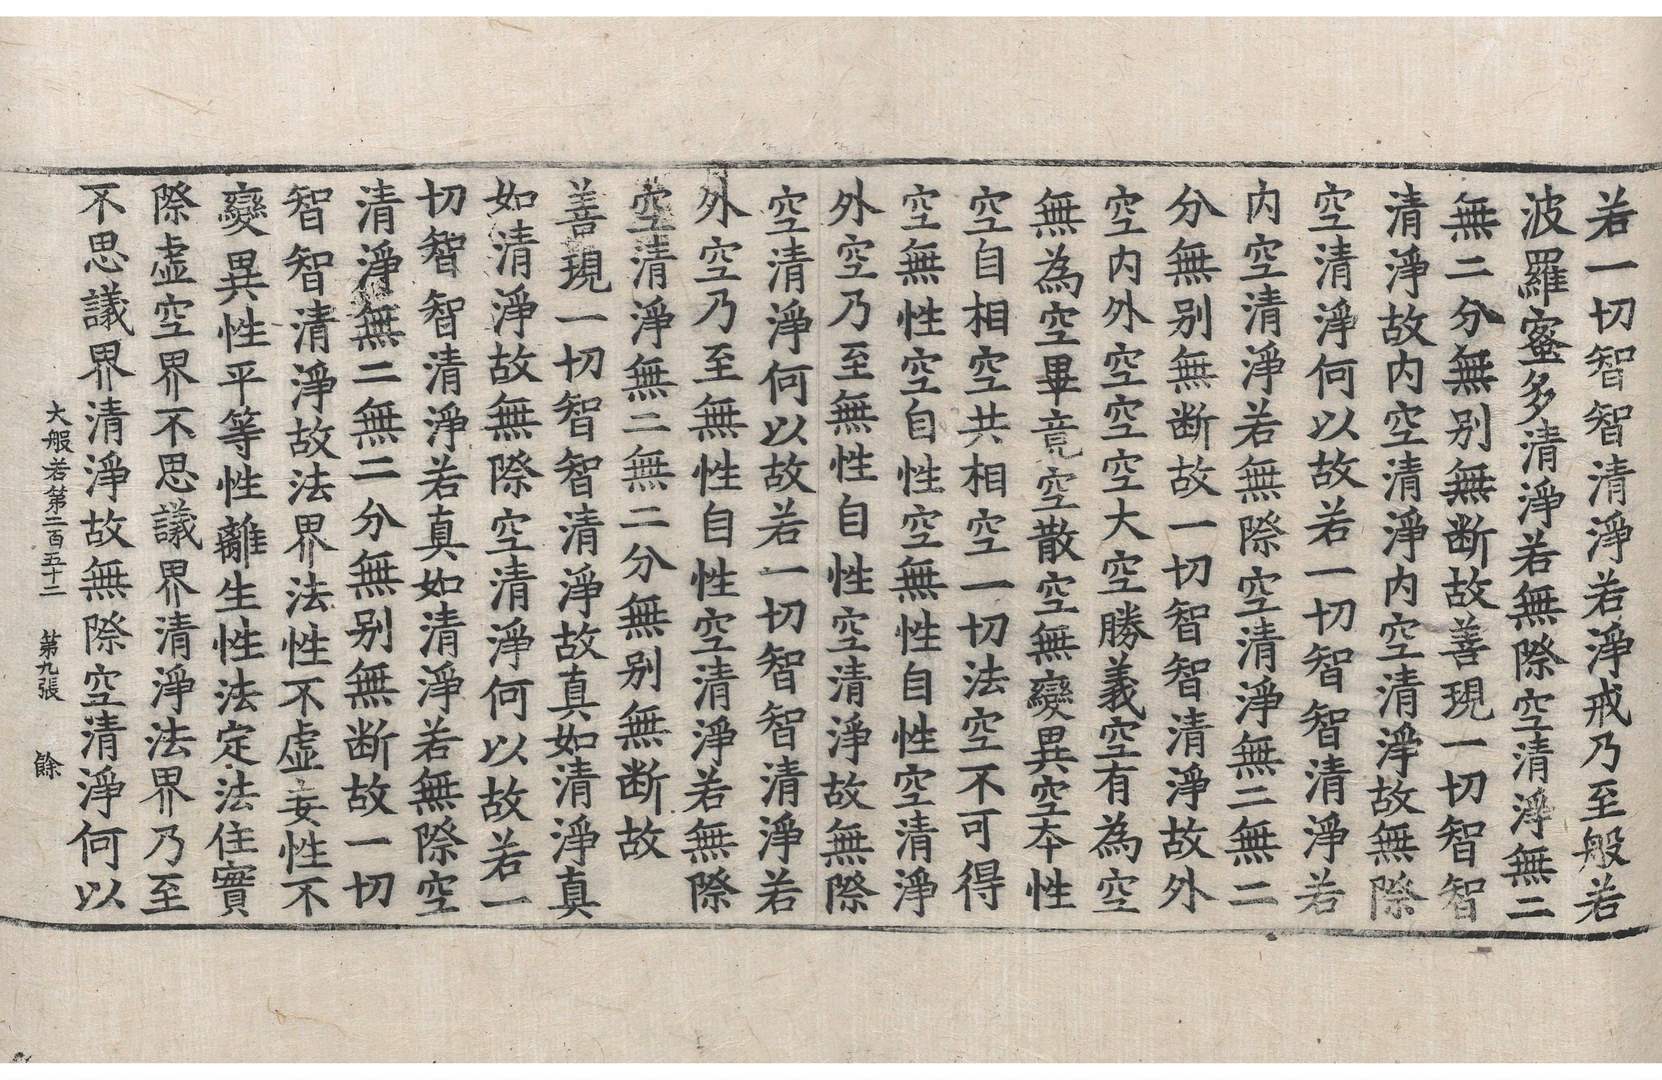 若一切智智清淨若淨戒乃至般若
波羅蜜多清淨若無際空清淨無二
無二分無別無断故善現一切智智
清淨故内空清淨内空清淨故無際
空清淨何以故若一切智智清淨若
内空清淨若無際空清淨無二無二
分無别無断故一切智智清淨故外
空内外空空空大空勝義空有為空
無為空畢竟空散空無變異空本性
空自相空共相空一切法空不可得
空無性空自性空無性自性空清淨
外空乃至無性自性空清淨故無際
空清淨何以故若一切智智清淨若
外空乃至無性自性空清淨若無際
空清淨無二無二分無别無断故
善現一切智智清淨故真如清淨真
如清淨故無際空清淨何以故若一
切智智清淨若真如清淨若無際空
清淨無二無二分無别無断故一切
智智清淨故法界法性不虚妄性不
變異性平等性離生性法定法住實
際虚空界不思議界清淨法界乃至
不思議界清淨故無際空清淨何以
大般若第二百五十二 第九張 餘